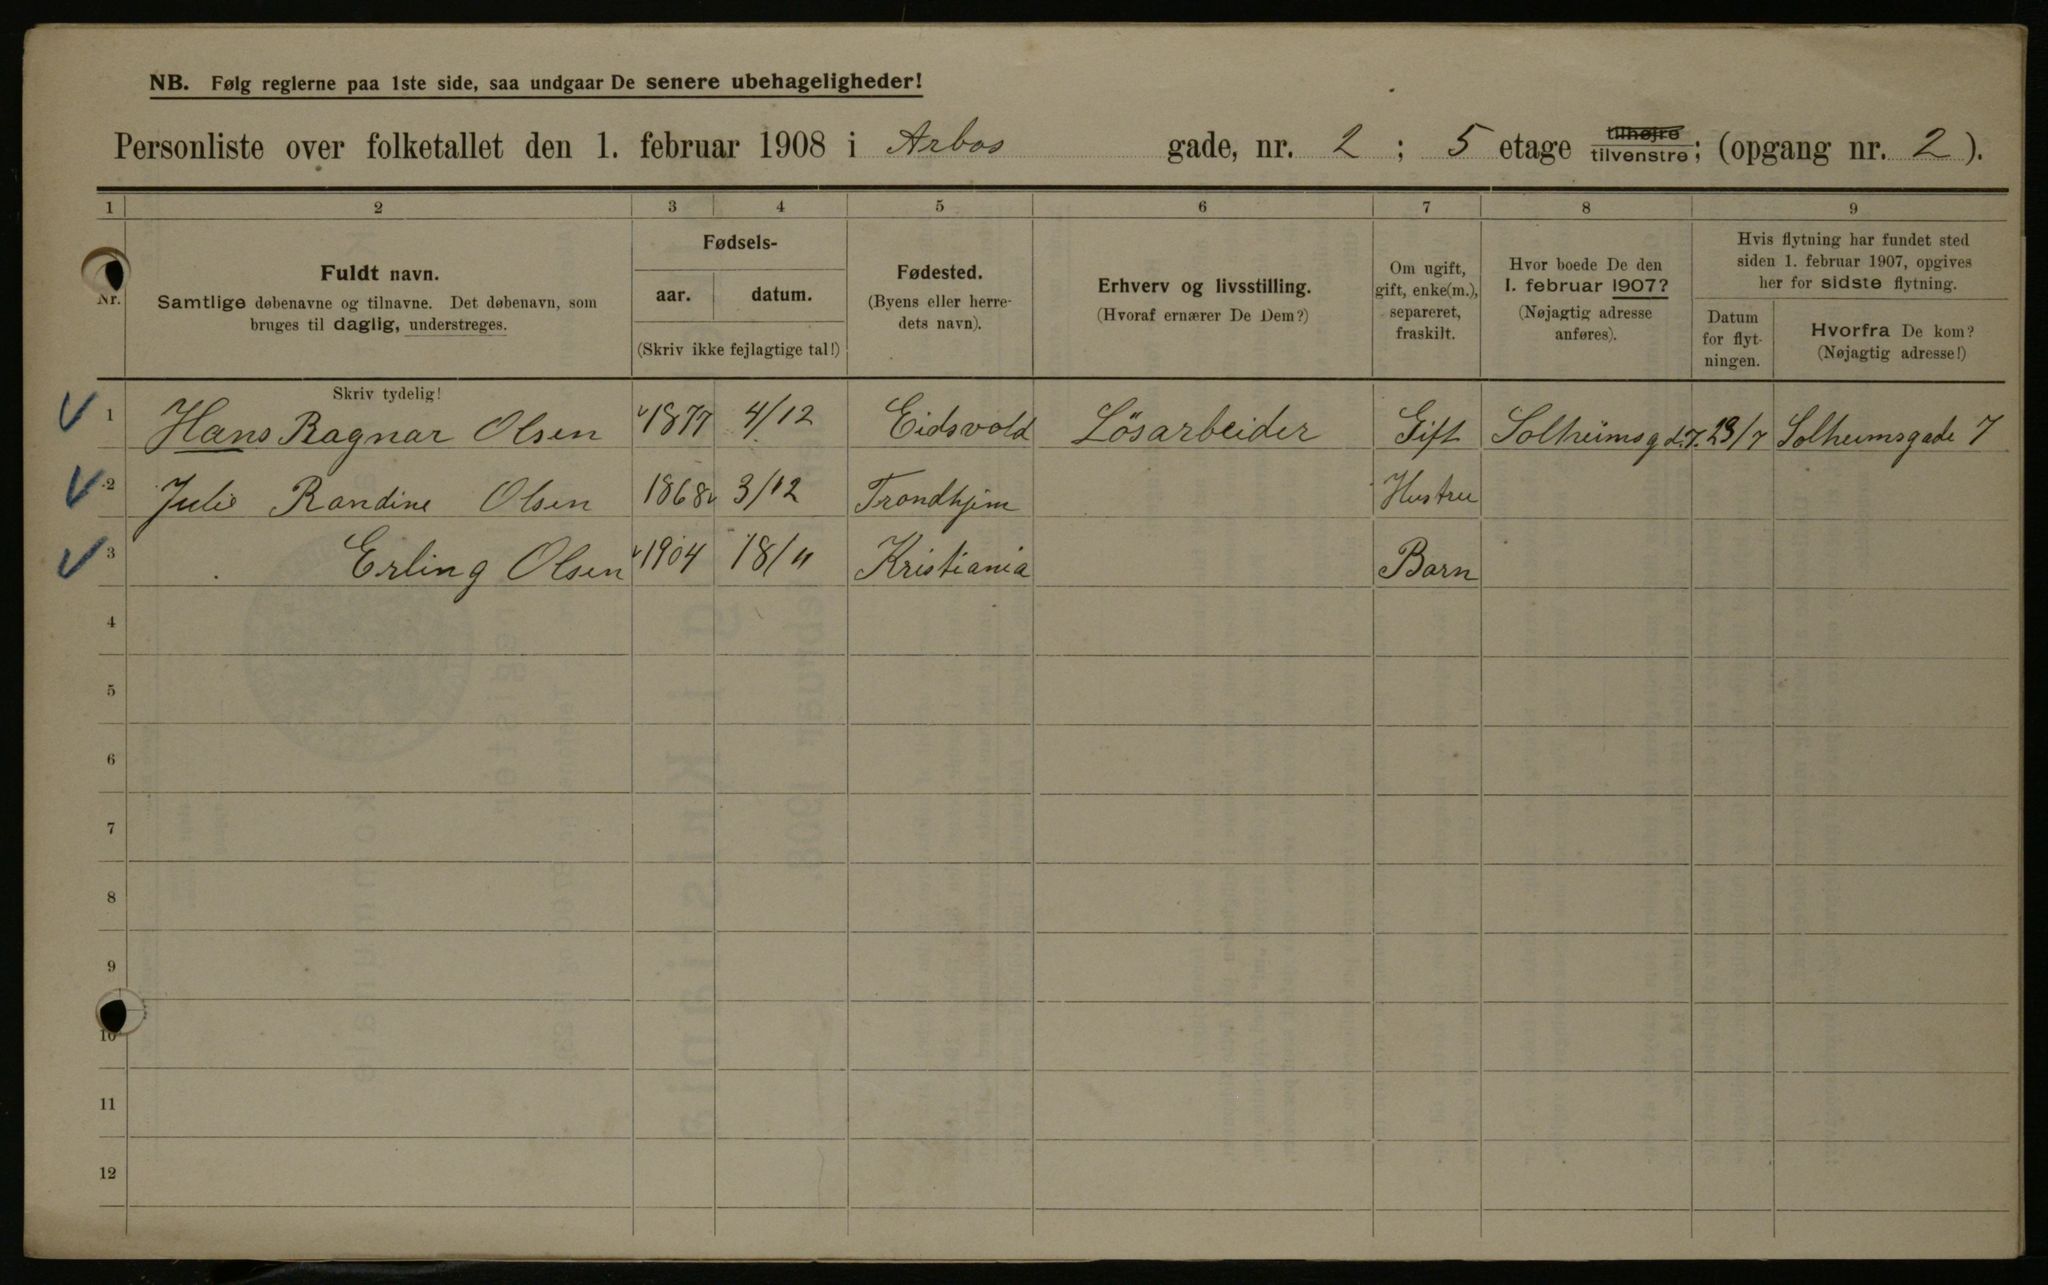 NB. Følg reglerne paa 1ste side, saa undgaar De senere ubehageligheder!
Personliste over folketallet den 1. februar 1908 i Arbos gade, nr. 2 ; 5 etage tilhøjre tilvenstre; (opgang nr. 2 ).
1 2 3 4 5 6 7 8 9
Nr.
Fuldt navn.
Samtlige døbenavne og tilnavne. Det døbenavn, som
bruges til daglig, understreges.
Fødsels-
aar. datum.
(Skriv ikke fejlagtige tal!)
Fødested.
(Byens eller herre-
dets navn).
Erhverv og livsstilling.
(Hvoraf ernærer De Dem?)
Om ugift,
gift, enke(m.),
separeret,
fraskilt.
Hvor boede De den
1. februar 1907?
(Nøjagtig adresse
anføres).
Hvis flytning har fundet sted
siden 1. februar 1907, opgives
her for sidste flytning.
Datum
for flyt-
ningen.
Hvorfra De kom?
(Nøjagtig adresse!)
Skriv tydelig!
1 Hans Ragnar Olsen 1877 4/12 Eidsvold Lösarbeider Gift Solheimsgd. 7. 23/7 Solheimsgade 7
2 Julie Randine Olsen 1868 3/12 Trondhjem Hustru
3 Erling Olsen 1904 18/11 Kristiania Barn
4
5
6
7
8
9
10
11
12